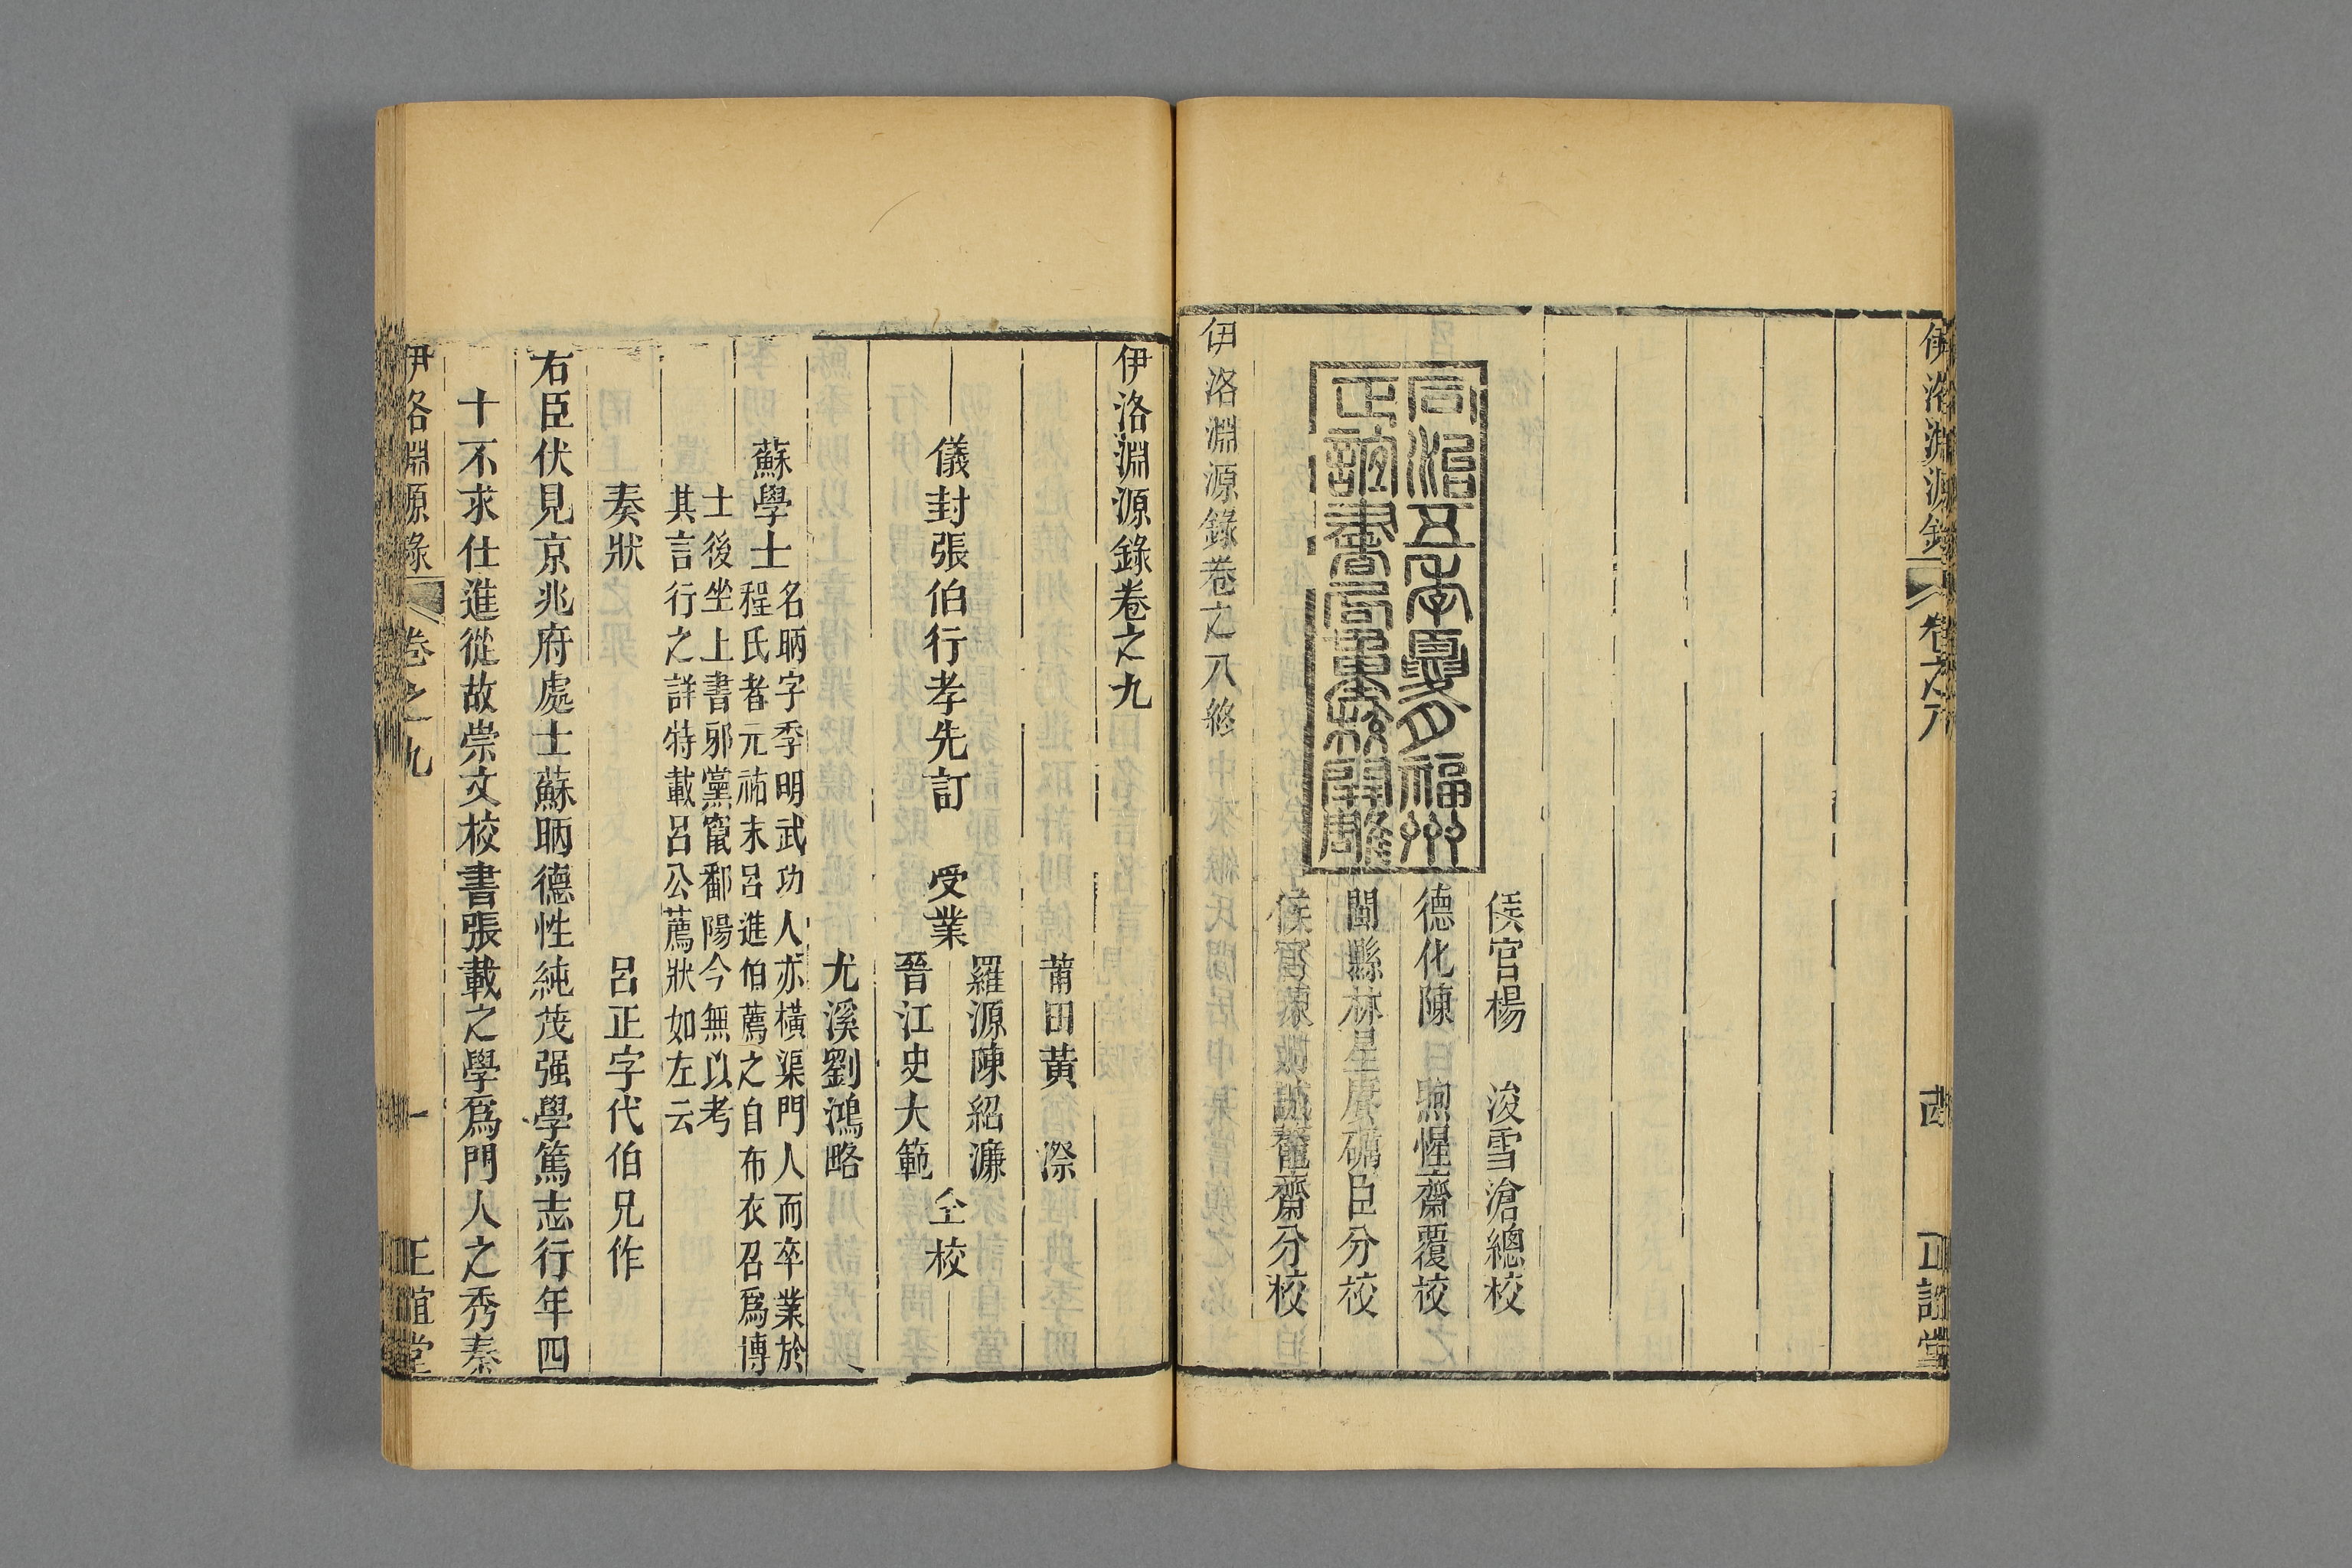 伊洛淵源錄 卷之八 正誼堂
侯官楊 浚雪滄總校
德化陳 煦惺齋覆校
閩縣林星賡礪臣分校
侯官陳 齋分校
同治五年夏月福州
正誼書局重校開雕
伊洛淵源錄卷之八終
伊洛淵源錄卷之九
莆田黃 漈
羅源陳紹濂
儀封張伯行孝先訂 受業 仝校
晉江史大範
尤溪劉鴻略
蘇學士 名昞字季明武功人亦橫渠門人而卒業於
程氏者元祐末呂進伯薦之自布衣召爲博
士後坐上書邪黨竄鄱陽今無以考
其言行之詳特載呂公薦狀如左云
奏狀 呂正字代伯兄作
右臣伏見京兆府處士蘇昞德性純茂强學篤志行年四
十不求仕進從故崇文校書張載之學爲門人之秀秦
伊洛淵源錄 卷之九 一 正誼堂